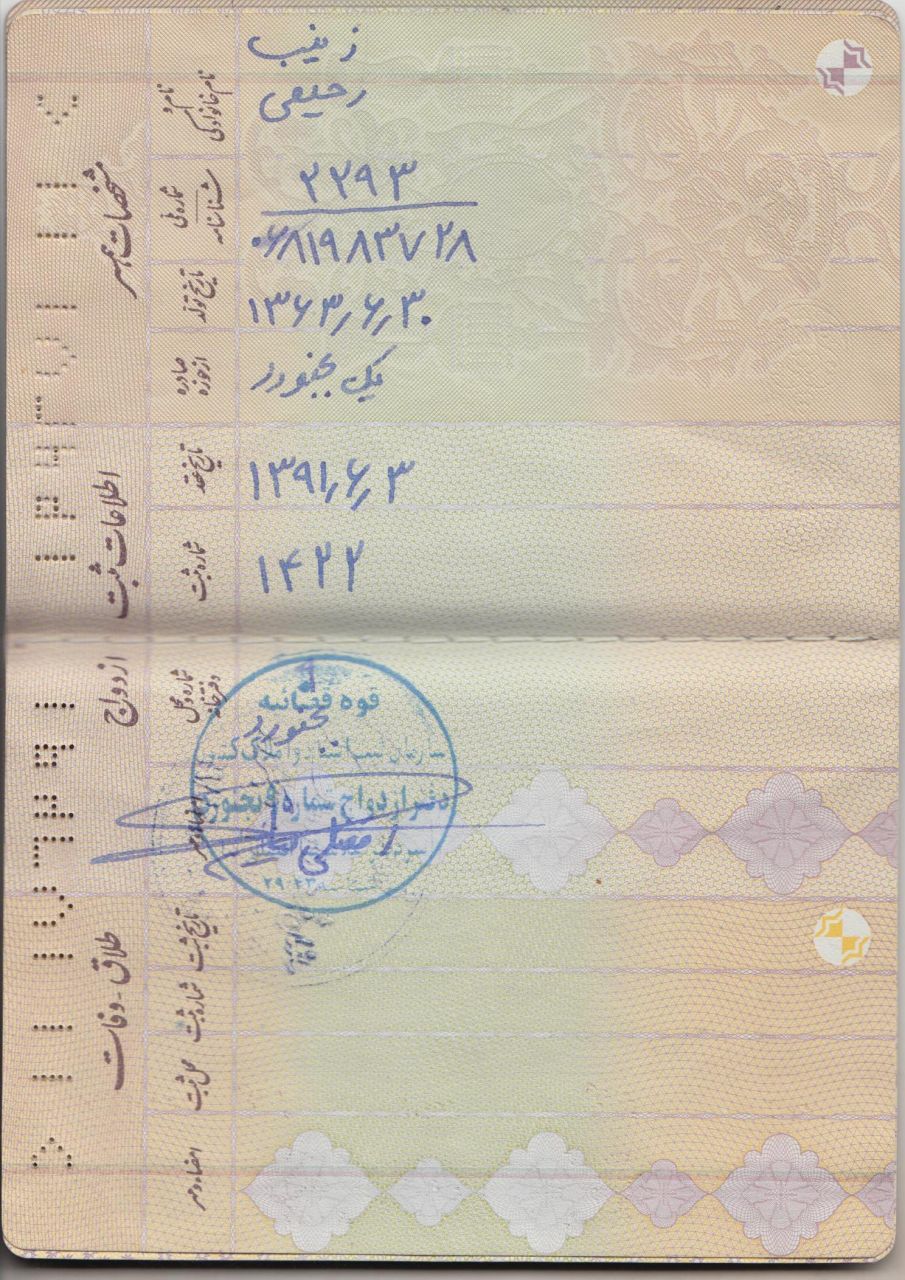 مشخصات همسر
نام و
نام خانوادگی
زینب
رحیمی
شماره ملی
شناسنامه
۲۲۹۳
۰۶۸۱۹۸۳۷۲۸
تاریخ تولد
۱۳۶۳٫۶٫۳۰
صادره
از حوزه
یک بجنورد
اطلاعات ثبت
ازدواج
تاریخ عقد
۱۳۹۱٫۶٫۳
شماره ثبت
۱۴۲۲
شماره و محل
دفترخانه
بجنورد
قوه قضائیه
سازمان ثبت اسناد و املاک کشور
دفتر ازدواج شماره ۹ بجنورد
طلاق - وفات
تاریخ ثبت
شماره ثبت
محل ثبت
امضاء و مهر